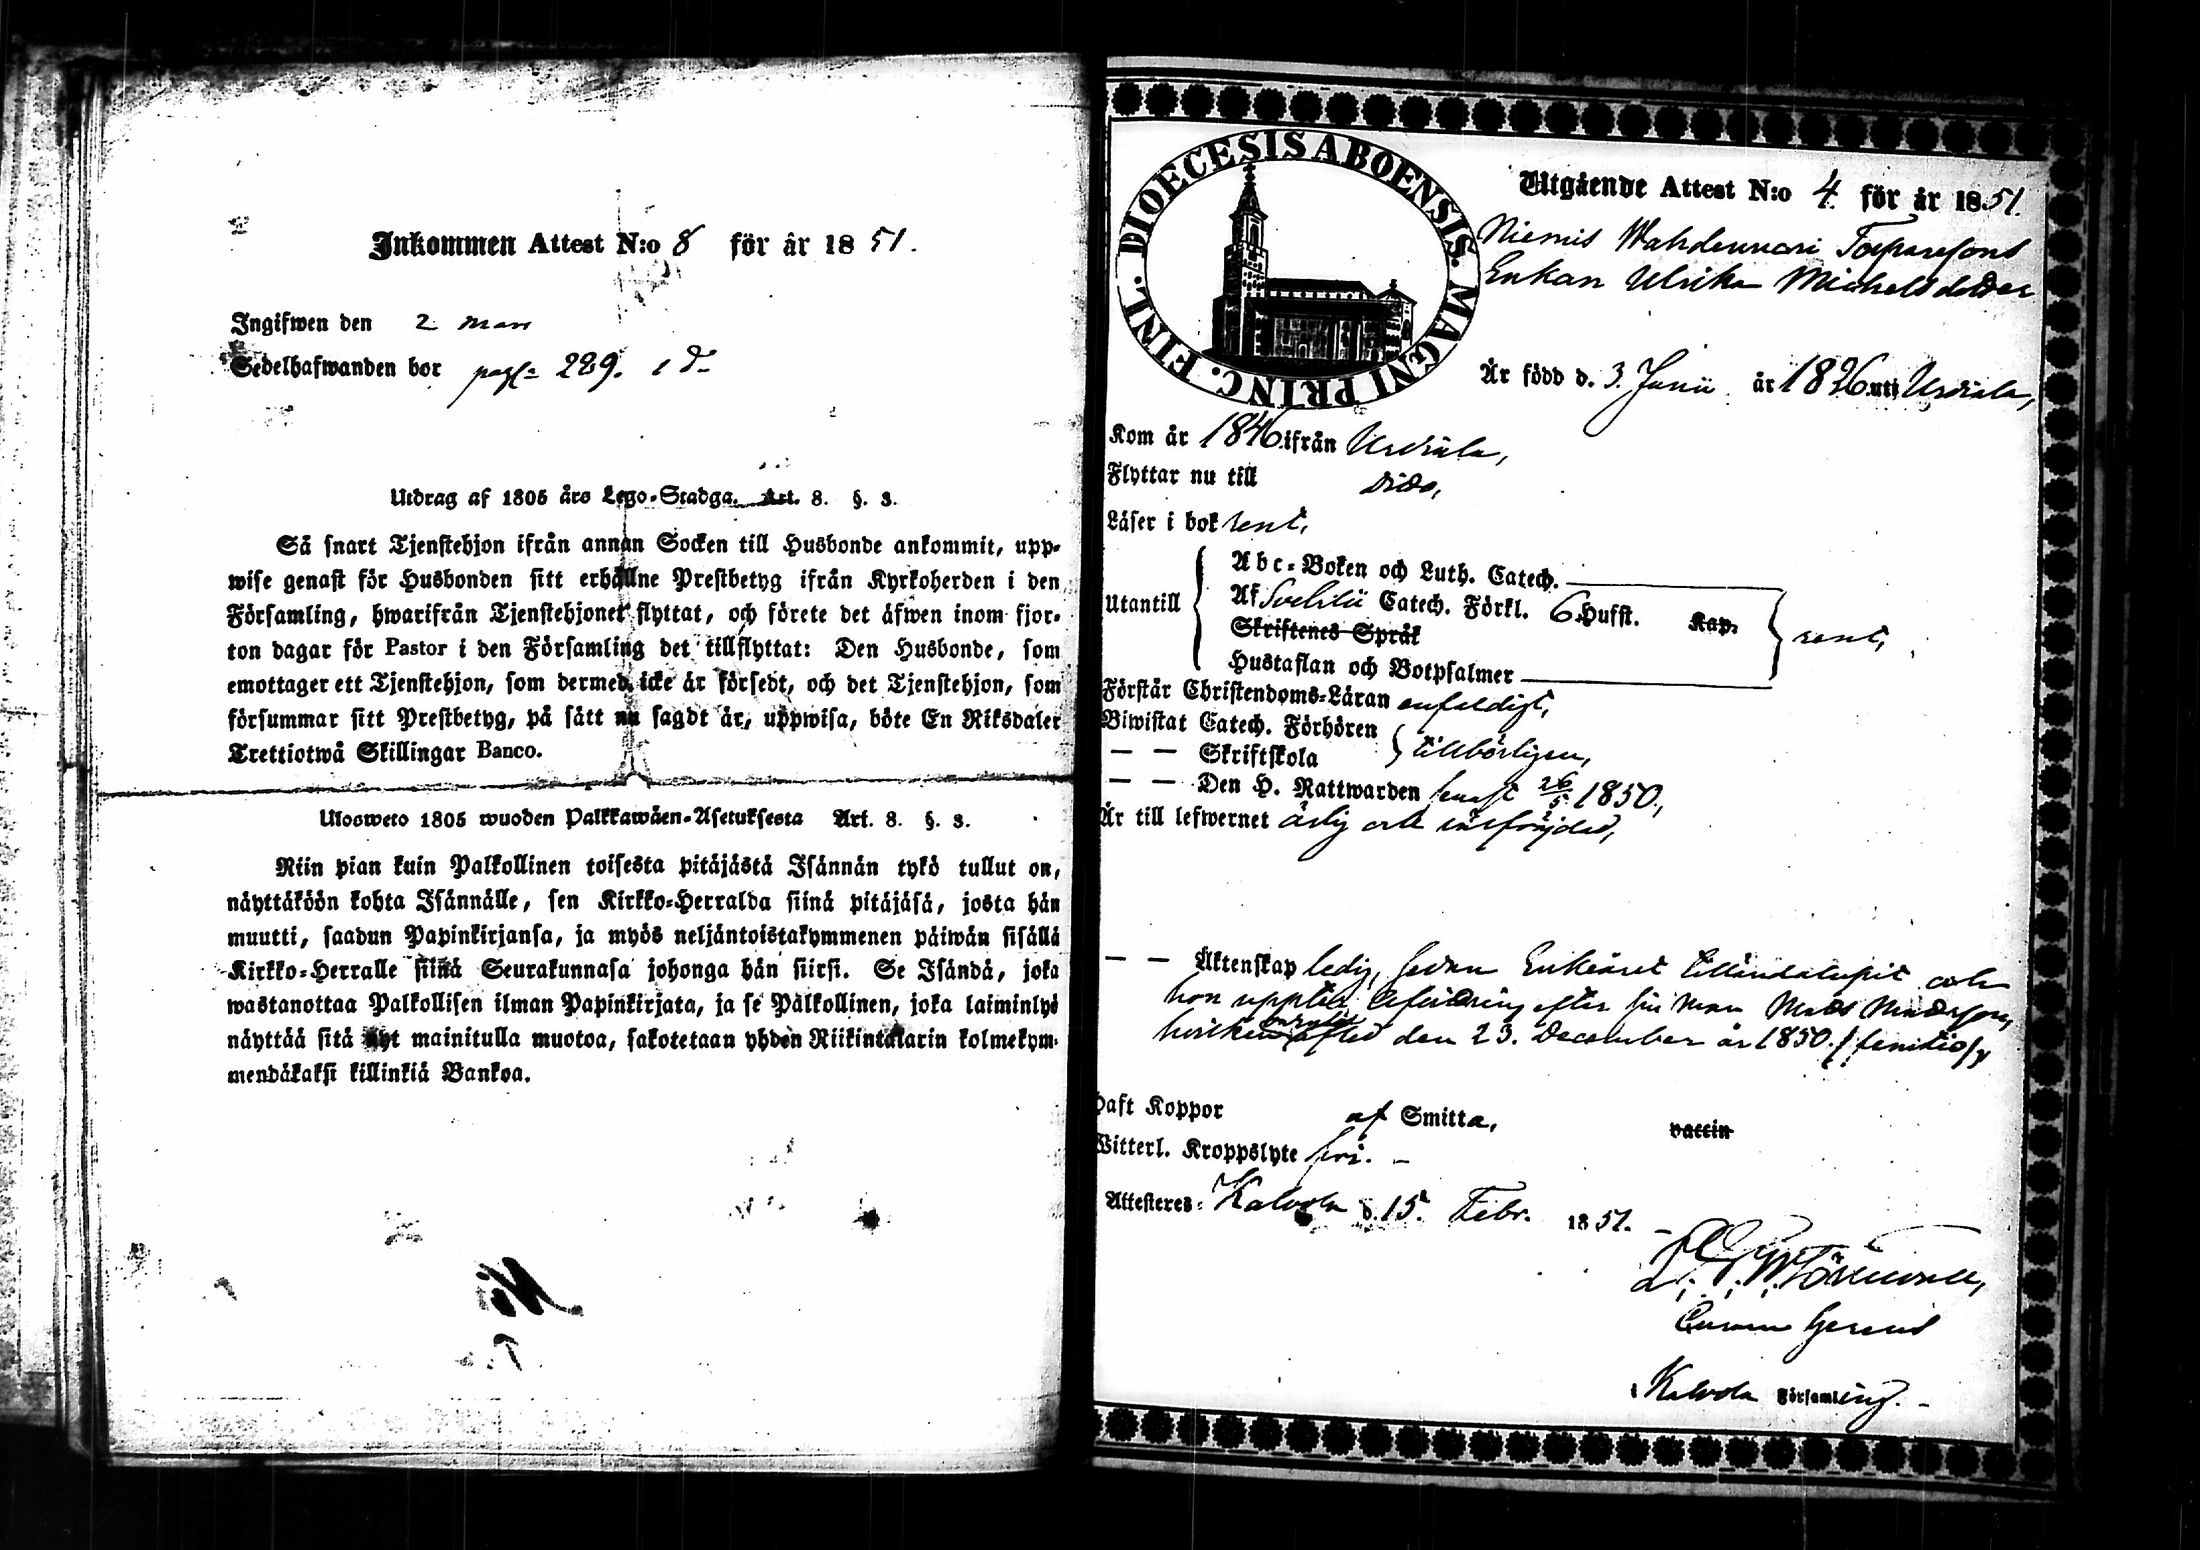 Inkommen Attest N:o 8 för år 1851.
Ingifwen den 2 mars
Sedelhafwanden bor pag: 229.
Utdrag af 1805 års Lego-Stadga. Art. 8. §. 3.
Så snart Tjenstehjon ifrån annan Socken till Husbonde ankommit, upp-
wise genast för Husbonden sitt erhållne Prestbetyg ifrån Kyrkoherden i den
Församling, hwarifrån Tjenstehjonet flyttat, och förete det äfwen inom fjor-
ton dagar för Pastor i den Församling det tillflyttat: Den Husbonde, som
emottager ett Tjenstehjon, som dermed icke är försedt, och det Tjenstehjon, som
försummar sitt Prestbetyg, på sätt nu sagdt är, uppwisa, böte En Riksdaler
Trettiotwå Skillingar Banco.
Ulosweto 1805 wuoden Palkkawäen-Asetuksesta Art. 8. §. 3.
Niin pian kuin Palkollinen toisesta pitäjästä Isännän tykö tullut on,
näyttäköön kohta Isännälle, sen Kirkko-Herralda siinä pitäjäsä, josta hän
muutti, saadun Papinkirjansa, ja myös neljäntoistakymmenen päiwän sisällä
Kirkko-Herralle siinä Seurakunnasa johonga hän siirsi. Se Isändä, joka
wastanottaa Palkollisen ilman Papinkirjata, ja se Palkollinen, joka laiminlyö
näyttää sitä nyt mainitulla muotoa, sakotetaan yhden Riikintalarin kolmekym-
mendäkaksi killinkiä Bankoa.
DIOECESIS ABOENSIS. MAGNI PRINC. FINL.
Utgående Attest N:o 4 för år 1851.
Niemis Torparesons
Enkan Ulrika Michelsdotter
Är född d. 3. Junii år 1826 uti Urdiala,
Kom år 1846 ifrån Urdiala,
Flyttar nu till dido,
Läser i bok rent,
Utantill
Abc-Boken och Luth. Catech.
Af Svebilii Catech. Förkl. 6 Hufst. Kap.
Skriftenes Språk
Hustaflan och Botpsalmer
rent,
Förstår Christendoms-Läran enfaldigt,
Biwistat Catech. Förhören
— — Skriftskola
tillbörligen,
— — Den H. Nattwarden senast 26/5 1850.,
Är till lefwernet ärlig och
— — Äktenskap ledig, sedan Enkeåret och
hon efter sin man Mats
den 23. December år 1850.
Haft Koppor af Smitta, vaccin
Witterl. Kroppslyte fri. –
Attesteres: Kalvola d. 15. Febr. 1851. –
Kalvola Församling. –